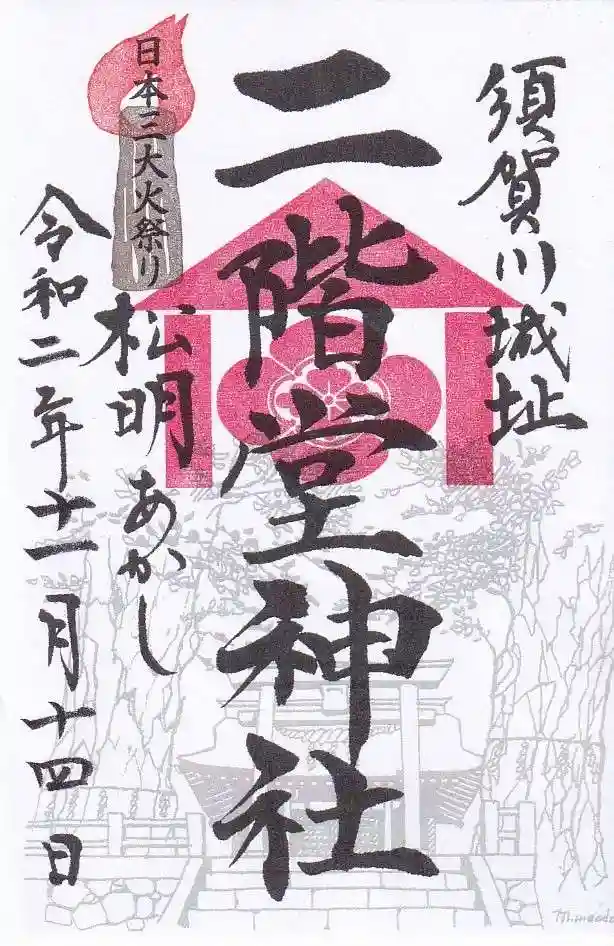 須賀川城址
二階堂神社
日本三大火祭り
松明あかし
令和二年十一月十四日